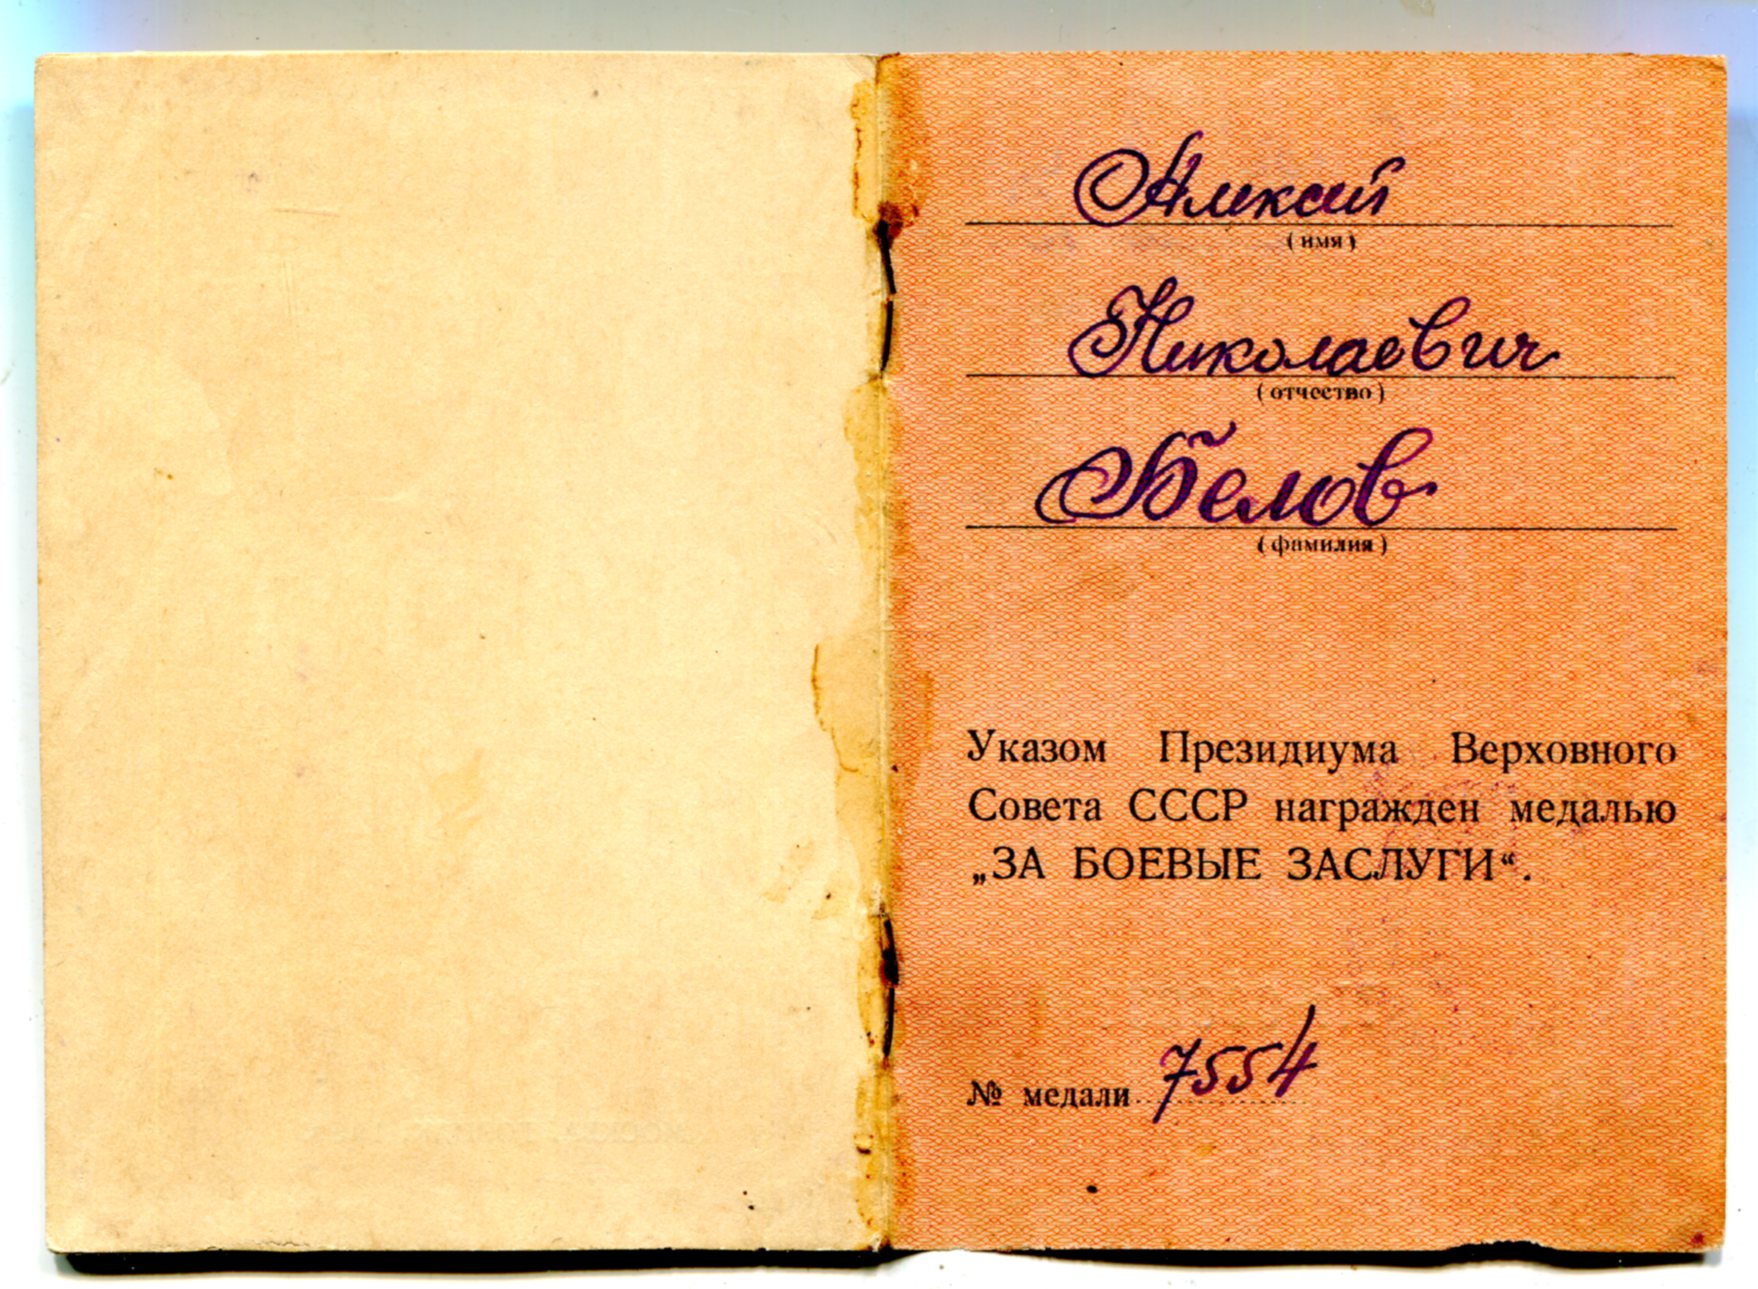 Алексей
(имя)
Николаевич
(отчество)
Белов
(фамилия)
Указом Президиума Верховного
Совета СССР награжден медалью
„ЗА БОЕВЫЕ ЗАСЛУГИ“.
№ медали 7554